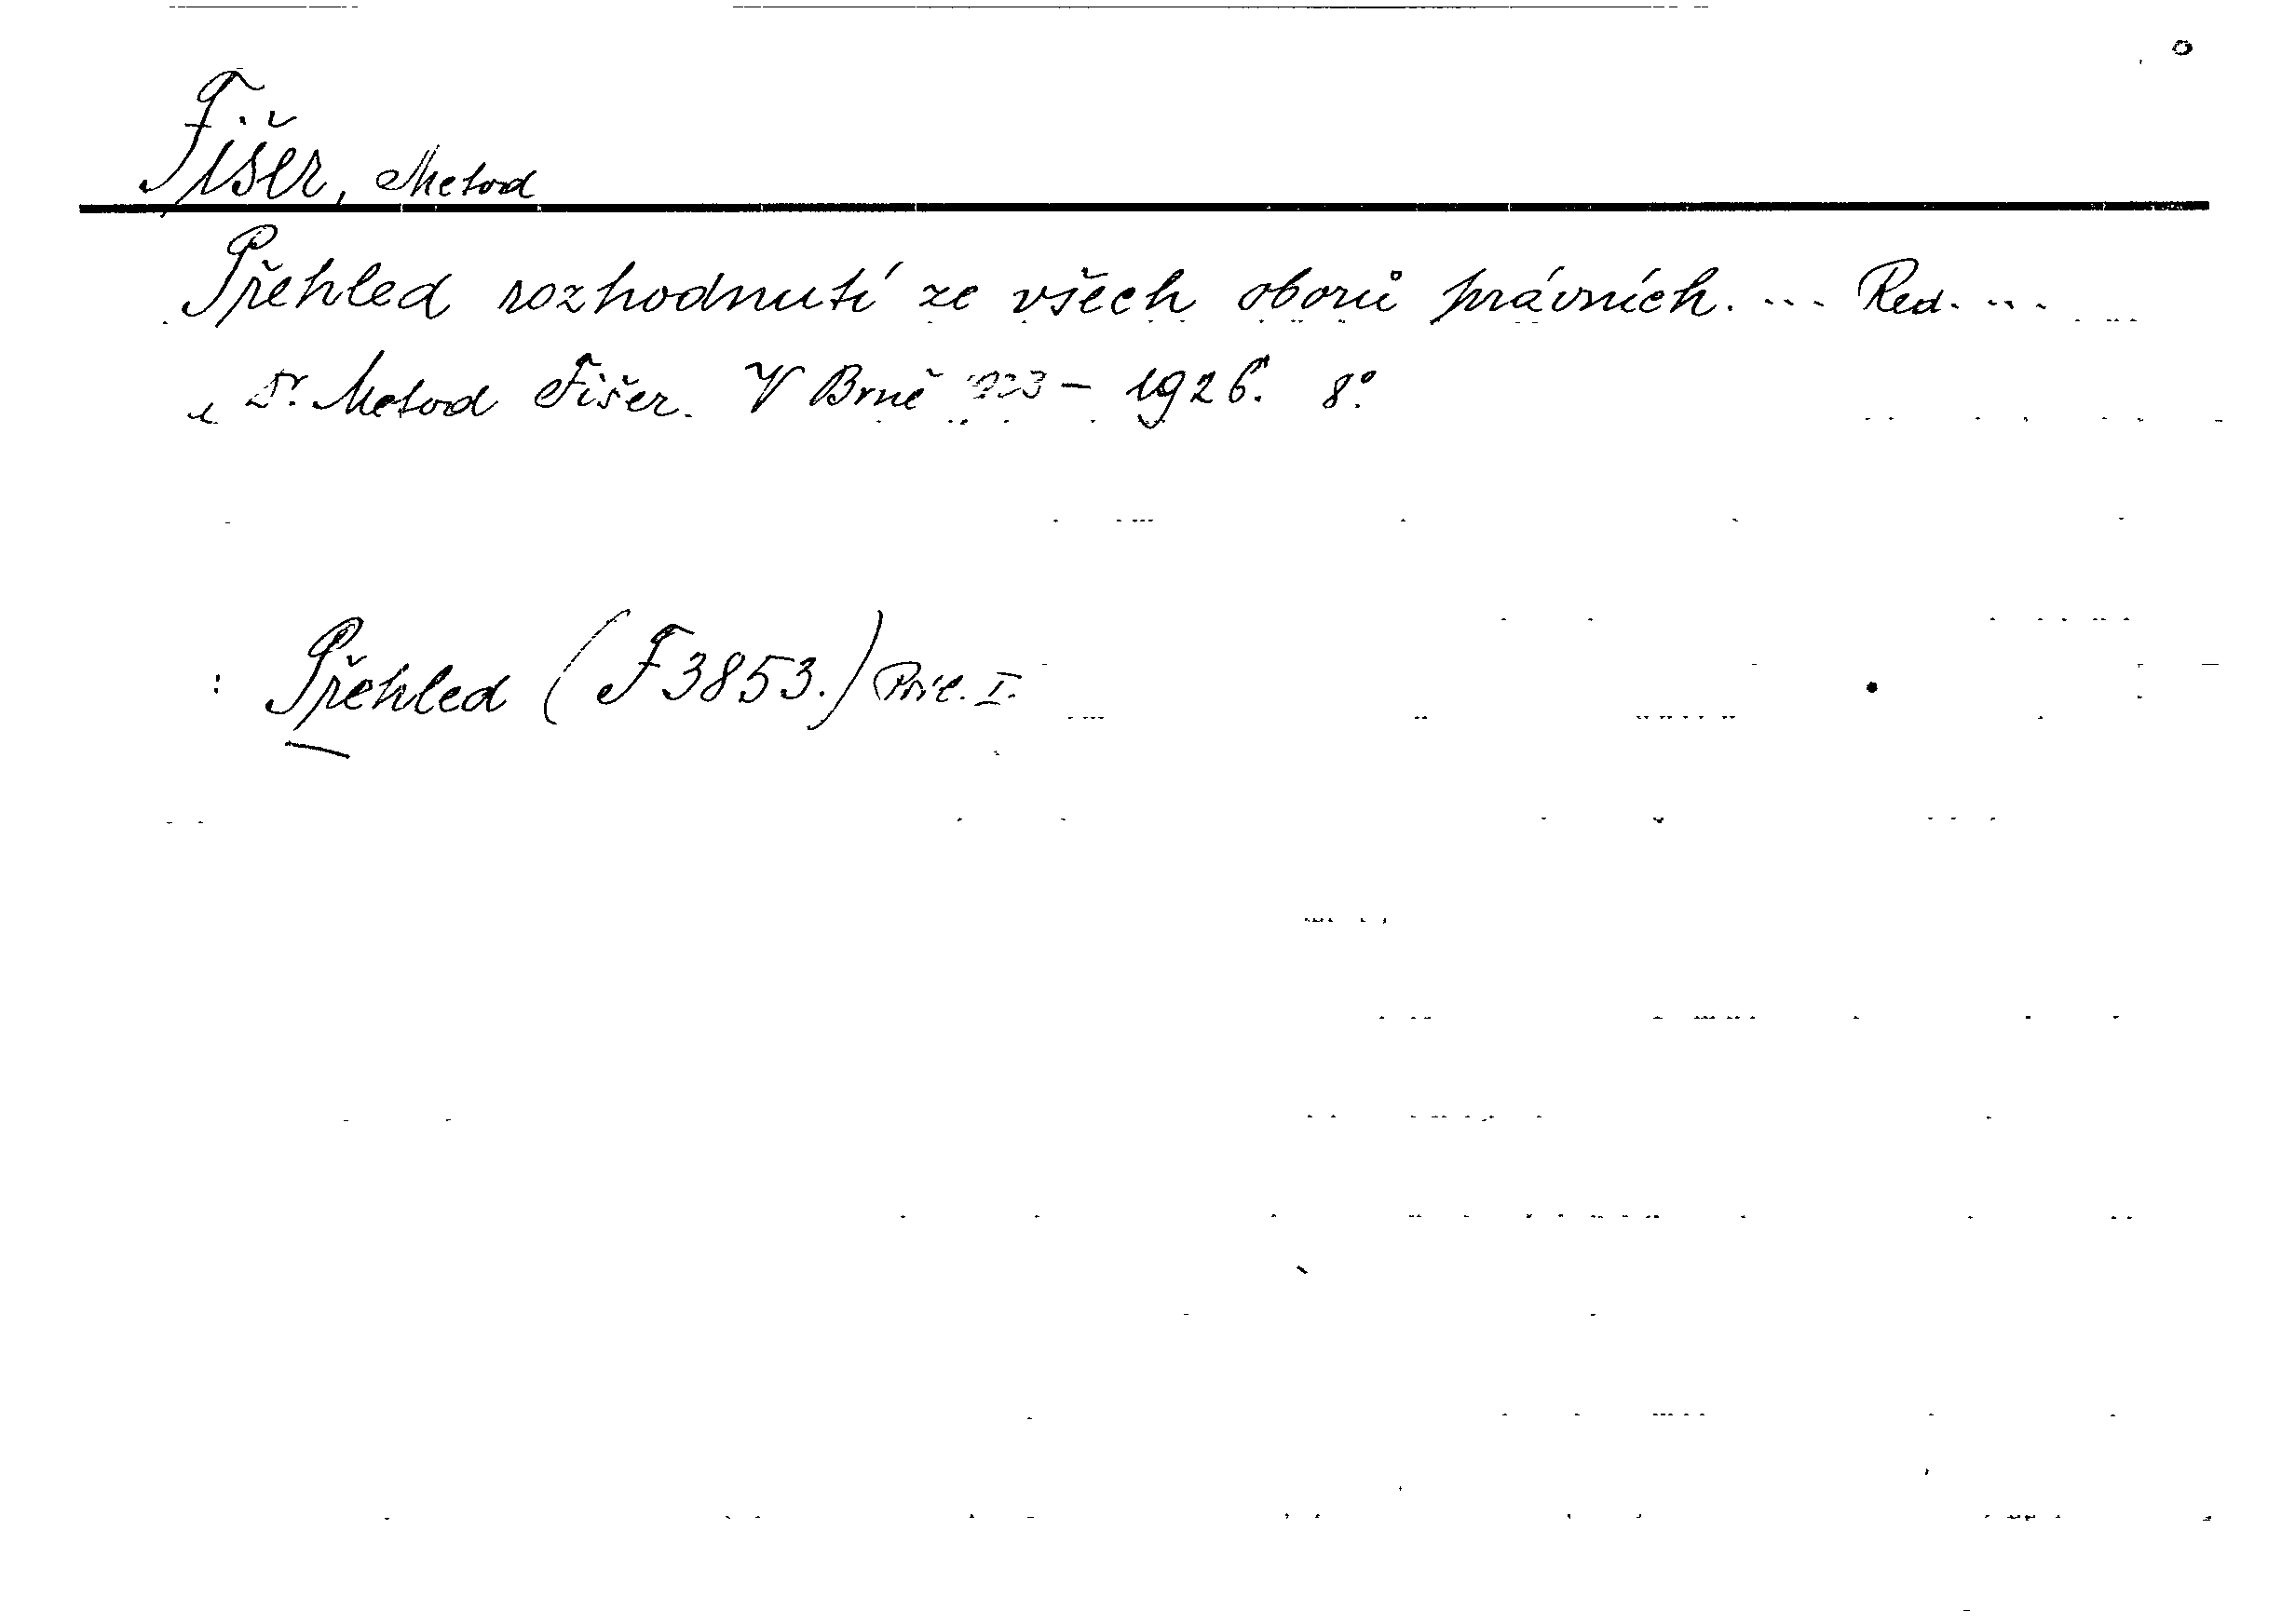 Fišer, Metod
Přehled rozhodnutí ze všech oborů právních. ... Red. ...
Dr. Metod Fišer. V Brně 1923 – 1926. 8°.
: Přehled (F 3853.) Příl. I.